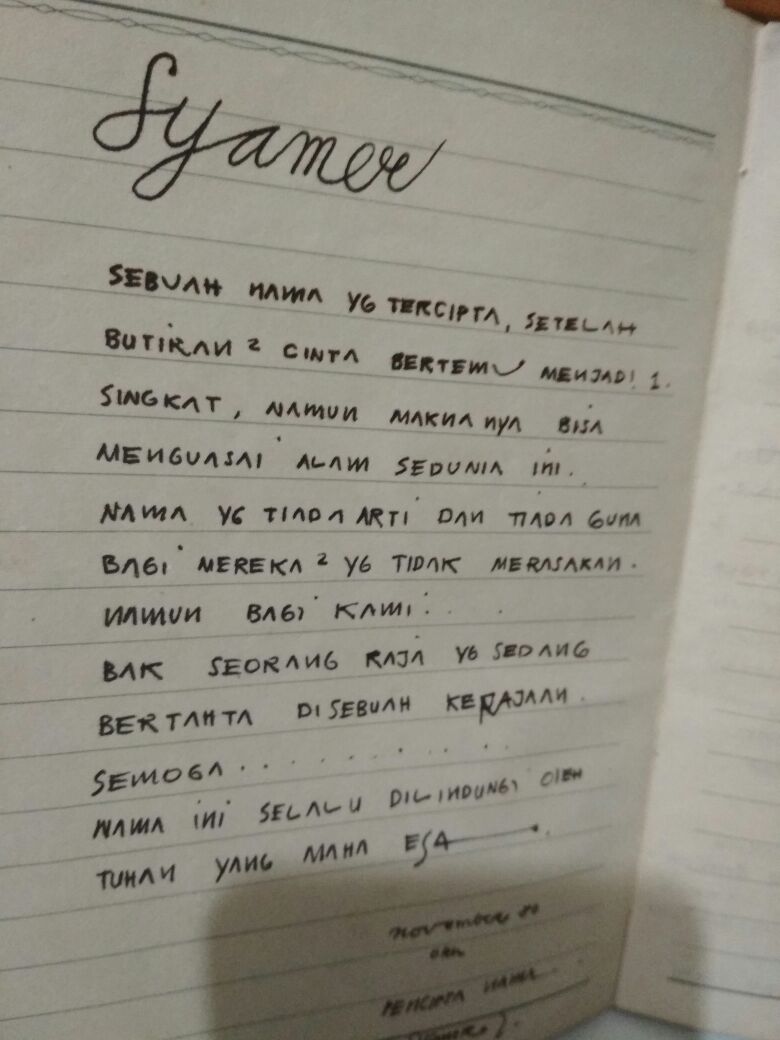 Syamer
SEBUAH NAMA YG TERCIPTA, SETELAH
BUTIRAN ² CINTA BERTEMU MENJADI 1.
SINGKAT, NAMUN MAKNANYA BISA
MENGUASAI ALAM SEDUNIA INI.
NAMA YG TIADA ARTI DAN TIADA GUNA
BAGI MEREKA ² YG TIDAK MERASAKAN.
NAMUN BAGI KAMI . . .
BAK SEORANG RAJA YG SEDANG
BERTAHTA DISEBUAH KERAJAAN.
SEMOGA . . . . . . . .
NAMA INI SELALU DILINDUNGI OLEH
TUHAN YANG MAHA ESA
november 80
OLEH
PENCIPTA NAMA